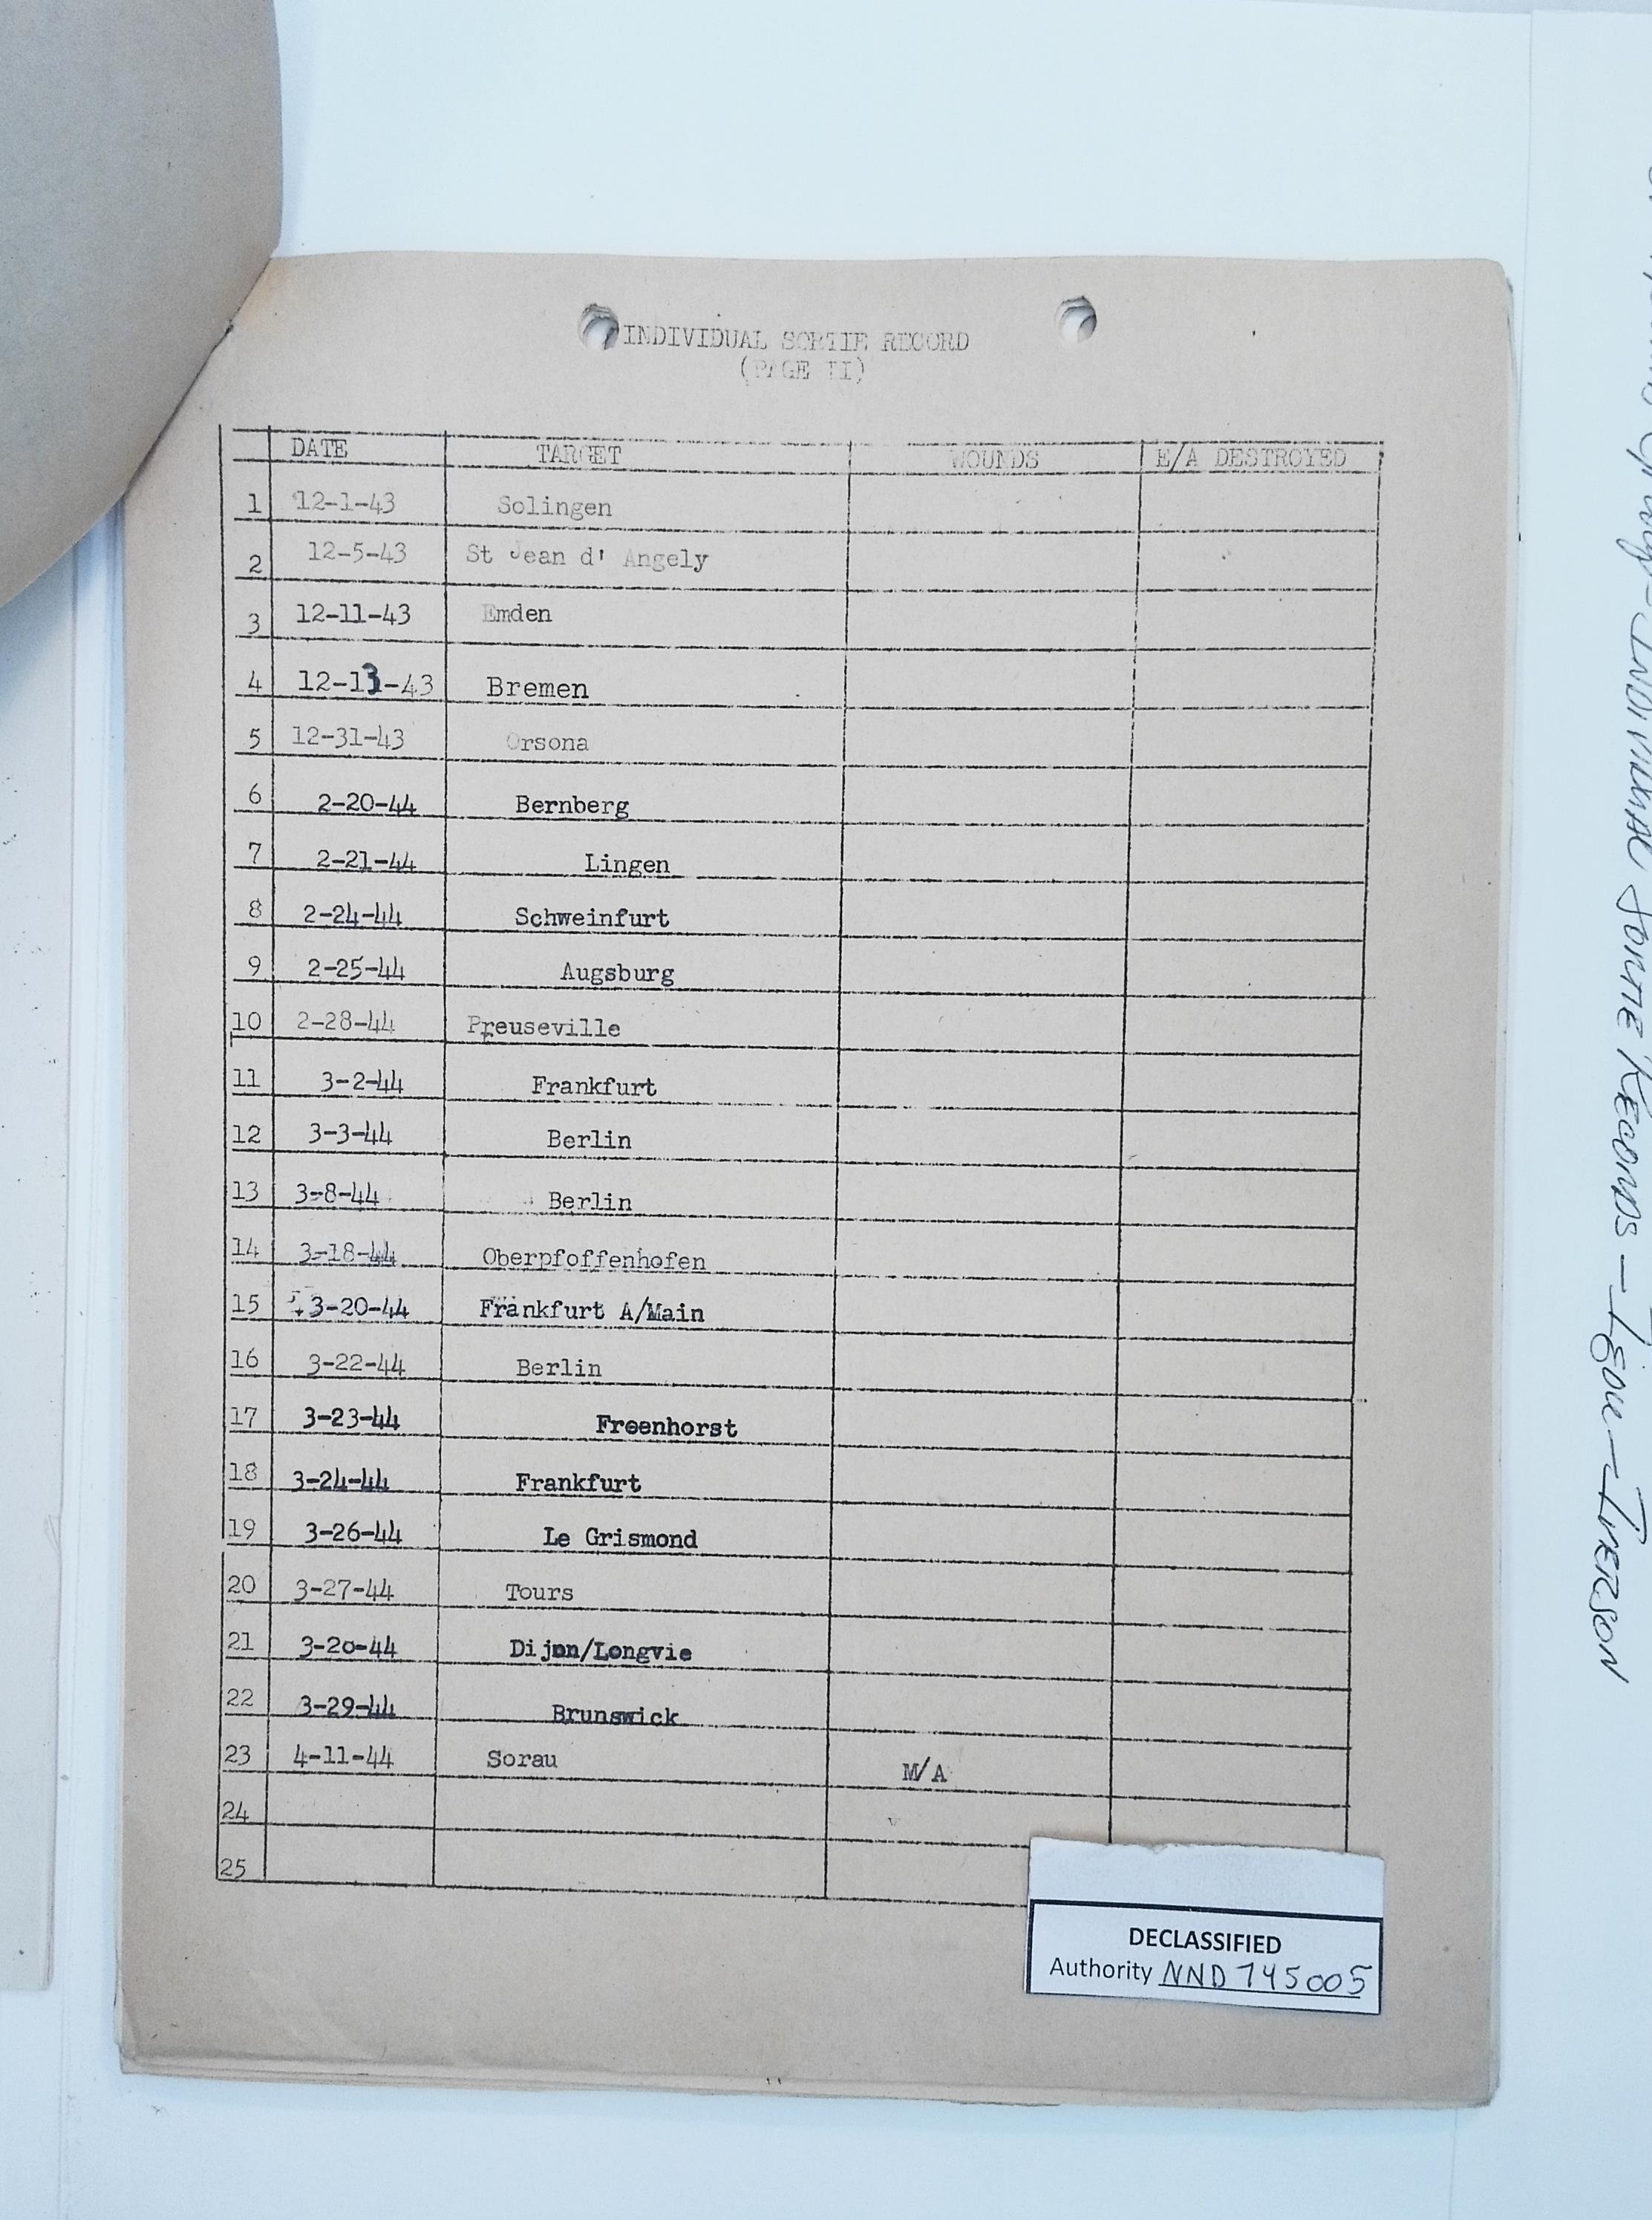 INDIVIDUAL SORTIE RECORD
(PAGE II)
DATE TARGET WOUNDS E/A DESTROYED
1 12-1-43 Solingen
2 12-5-43 St Jean d' Angely
3 12-11-43 Emden
4 12-13-43 Bremen
5 12-31-43 Orsona
6 2-20-44 Bernberg
7 2-21-44 Lingen
8 2-24-44 Schweinfurt
9 2-25-44 Augsburg
10 2-28-44 Preuseville
11 3-2-44 Frankfurt
12 3-3-44 Berlin
13 3-8-44 Berlin
14 3-18-44 Oberpfoffenhofen
15 3-20-44 Frankfurt A/Main
16 3-22-44 Berlin
17 3-23-44 Freenhorst
18 3-24-44 Frankfurt
19 3-26-44 Le Grismond
20 3-27-44 Tours
21 3-20-44 Dijon/Longvie
22 3-29-44 Brunswick
23 4-11-44 Sorau M/A
24
25
DECLASSIFIED
Authority NND 745005
INDIVIDUAL SORTIE RECORDS